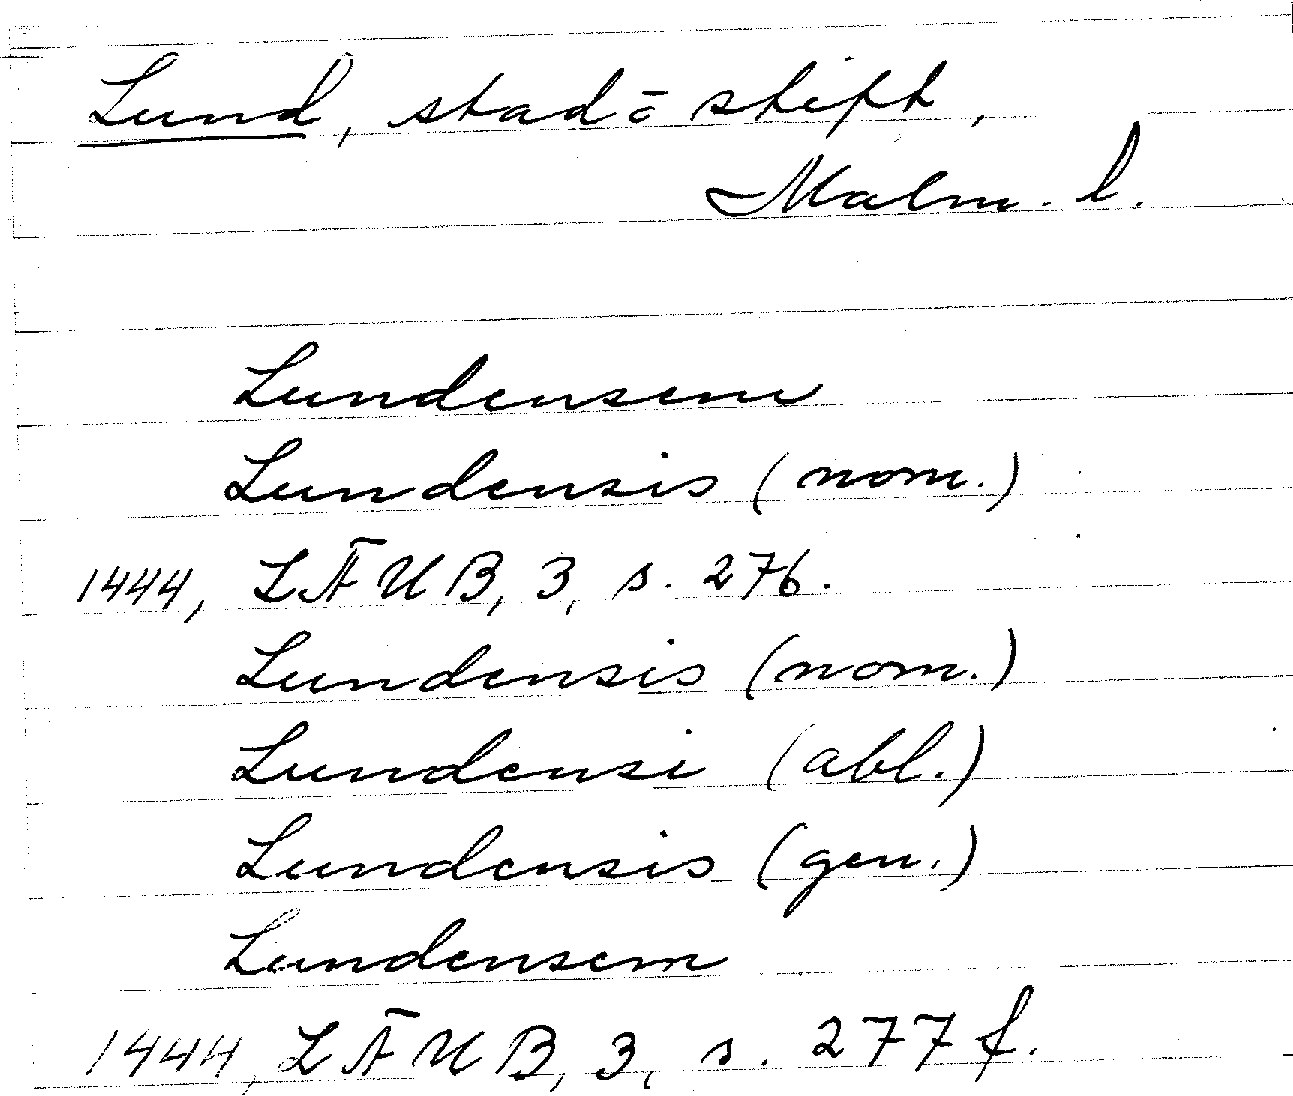 Lund, stad o stift,
Malm. l.
Lundensem
Lundensis (nom.)
1444, LÄUB, 3, s. 276.
Lundensis (nom.)
Lundensi (abl.)
Lundensis (gen.)
Lundensem
1444, LÄUB, 3, s. 277 f.